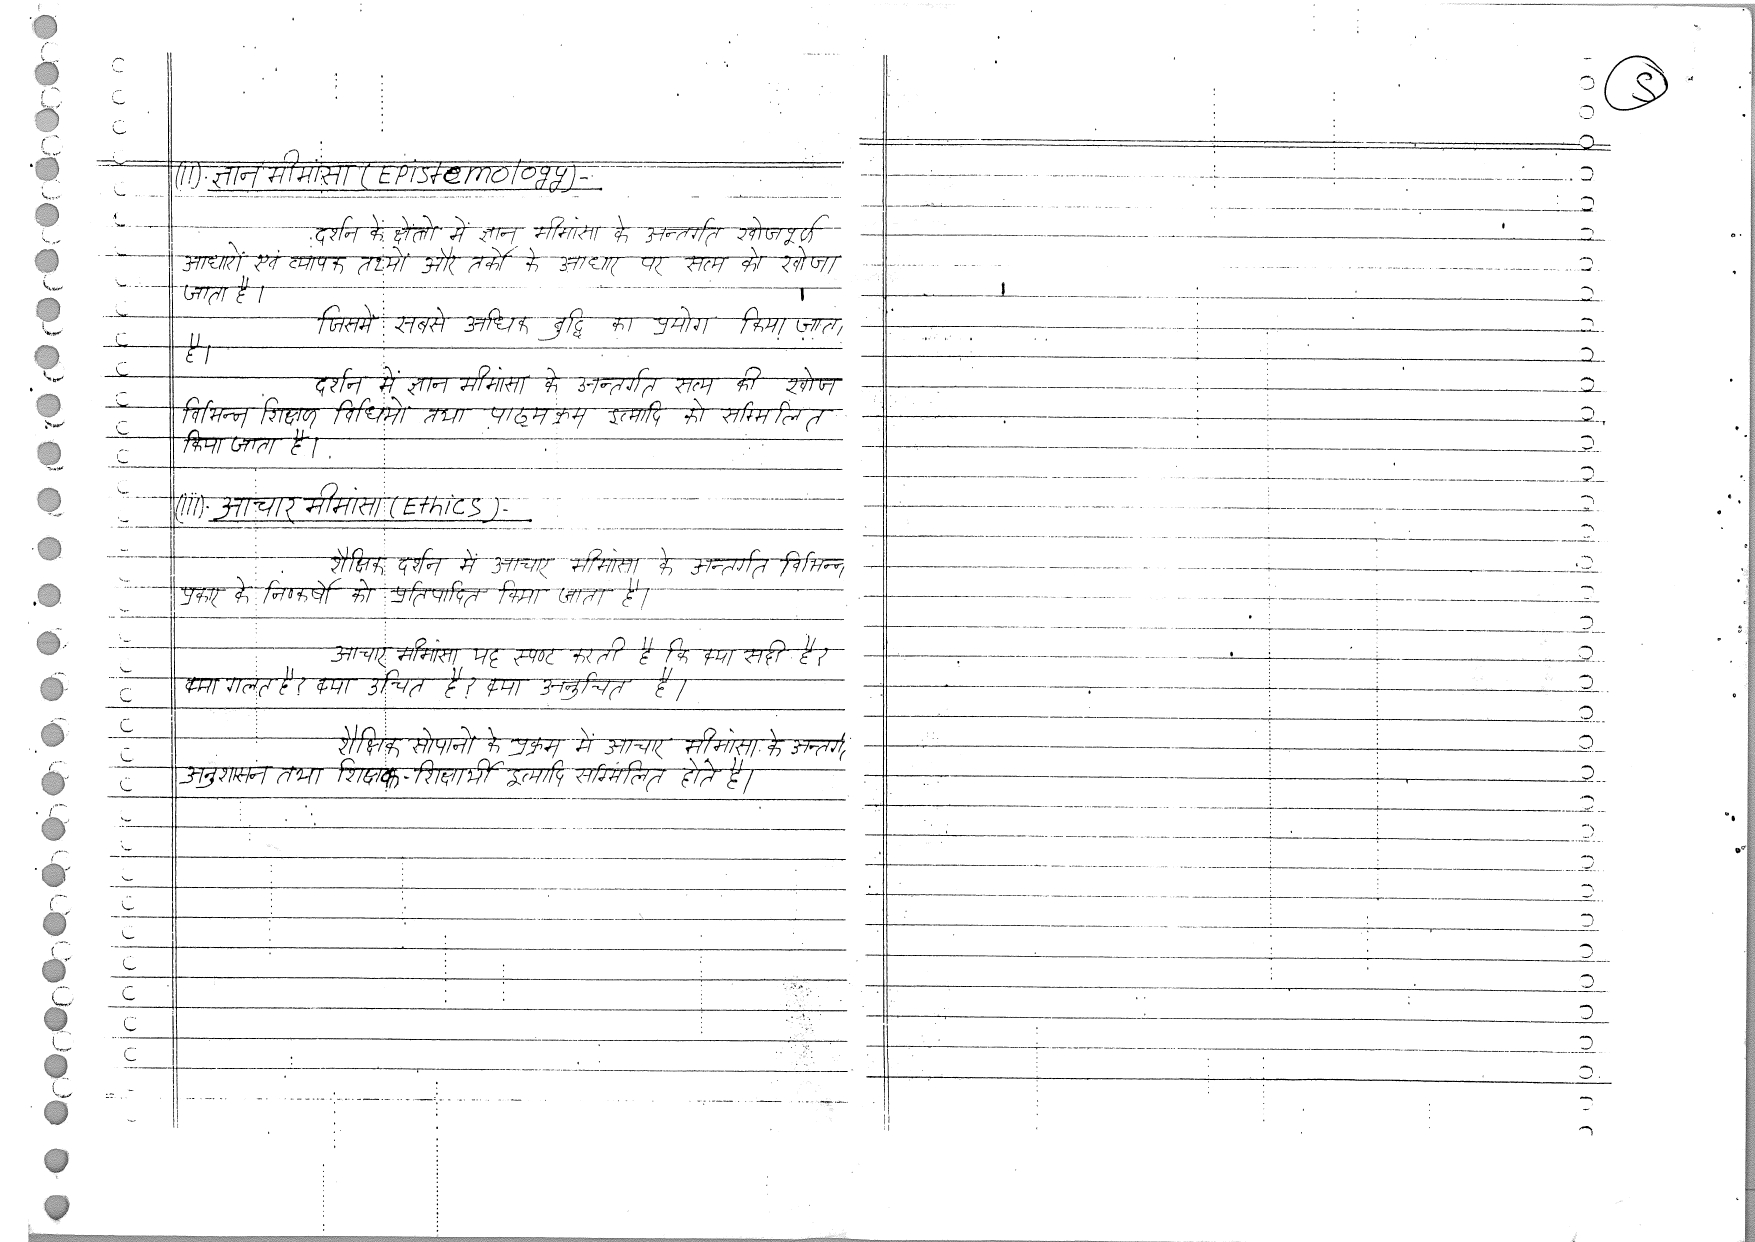 (II). ज्ञान मीमांसा (Epistemology)-
दर्शन के क्षेत्रो में ज्ञान मीमांसा के अन्तर्गत खोजपूर्ण
आधारों एवं व्यापक तथ्यों और तर्को के आधार पर सत्य को खोजा
जाता है।
जिसमें सबसे अधिक बुद्धि का प्रयोग किया जाता
है।
दर्शन में ज्ञान मीमांसा के अन्तर्गत सत्य की खोज
विभिन्न शिक्षण विधियों तथा पाठ्यक्रम इत्यादि को सम्मिलित
किया जाता है।
(III). आचार मीमांसा (Ethics)-
शैक्षिक दर्शन में आचार मीमांसा के अन्तर्गत विभिन्न
प्रकार के निष्कर्षो को प्रतिपादित किया जाता है।
आचार मीमांसा यह स्पष्ट करती है कि क्या सही है?
क्या गलत है? क्या उचित है? क्या अनुचित है।
शैक्षिक सोपानो के प्रक्रम में आचार मीमांसा के अन्तर्ग
अनुशासन तथा शिक्षक-शिक्षार्थी इत्यादि सम्मिलित होते है।